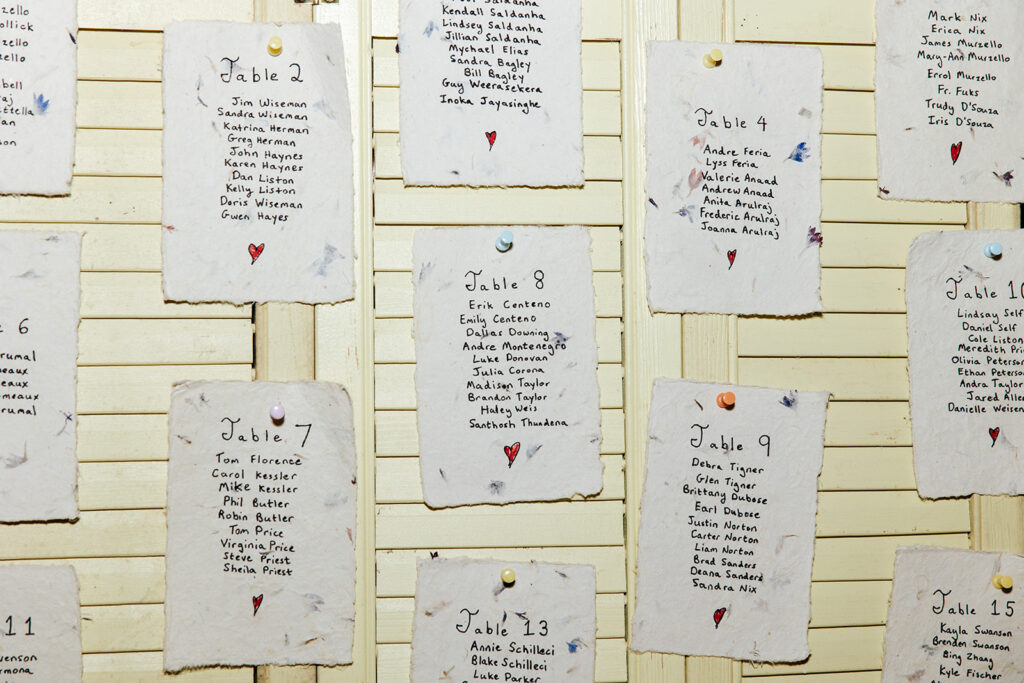 Table 2
Jim Wiseman
Sandra Wiseman
Katrina Herman
Greg Herman
John Haynes
Karen Haynes
Dan Liston
Kelly Liston
Doris Wiseman
Gwen Hayes
Saldanha
Kendall Saldanha
Lindsey Saldanha
Jillian Saldanha
Mychael Elias
Sandra Bagley
Bill Bagley
Guy Weerasekera
Inoka Jayasinghe
Table 4
Andre Feria
Lyss Feria
Valerie Anaad
Andrew Anaad
Anita Arulraj
Frederic Arulraj
Joanna Arulraj
Mark Nix
Erica Nix
James Murzello
Mary-Ann Murzello
Errol Murzello
Fr. Fuks
Trudy D'Souza
Iris D'Souza
6
Table 7
Tom Florence
Carol Kessler
Mike Kessler
Phil Butler
Robin Butler
Tom Price
Virginia Price
Steve Priest
Sheila Priest
Table 8
Erik Centeno
Emily Centeno
Dallas Downing
Andre Montenegro
Luke Donovan
Julia Corona
Madison Taylor
Brandon Taylor
Haley Weis
Santhosh Thundena
Table 9
Debra Tigner
Glen Tigner
Brittany Dubose
Earl Dubose
Justin Norton
Carter Norton
Liam Norton
Brad Sanders
Deana Sanders
Sandra Nix
Table 10
Lindsay Self
Daniel Self
Cole Liston
Meredith
Olivia
Ethan
Andra Taylor
Jared
Danielle
11
Table 13
Annie Schilleci
Blake Schilleci
Luke Parker
Table 15
Kayla Swanson
Brenden Swanson
Bing Zhang
Kyle Fischer